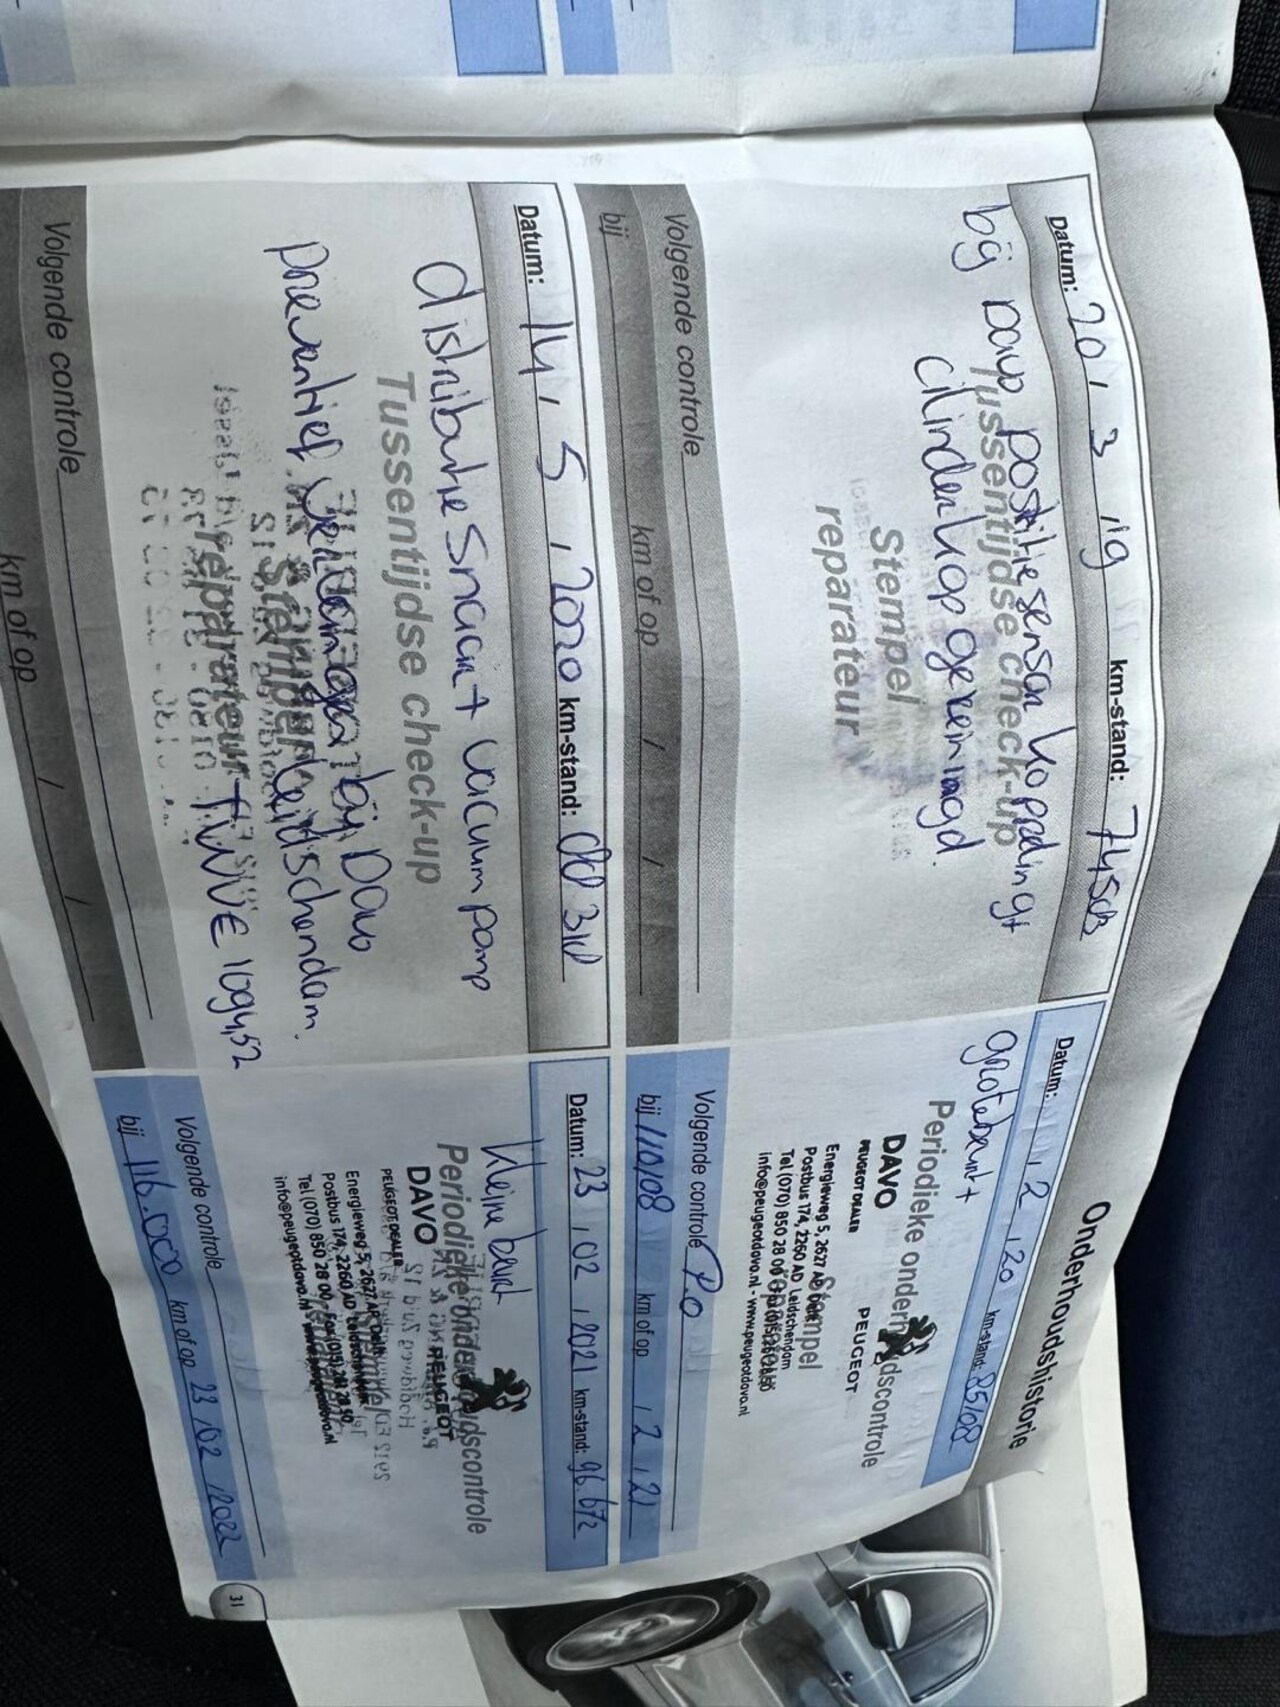 Onderhoudshistorie
Datum: 20 / 3 / 19 km-stand: 74503
bij Davo positiesensor koppeling +
Tussentijdse check-up
cilinderkop gereinigd.
Stempel
reparateur
Volgende controle
bij km of op / /
Datum: / 2 / 20 km-stand: 85108
grotebeurt +
Periodieke onderhoudscontrole
DAVO
PEUGEOT DEALER
PEUGEOT
Stempel
Energieweg 5, 2627 AP Delft
Postbus 174, 2260 AD Leidschendam
Tel (070) 850 28 00
info@peugeotdavo.nl - www.peugeotdavo.nl
Volgende controle PO
bij 110108 km of op / 2 / 21
Datum: 14 / 5 / 2020 km-stand:
distributie Snaar + vacuum pomp
Tussentijdse check-up
preventief vervangen bij Davo
Stempel Leidschendam.
reparateur TWVE 1094,52
Volgende controle
km of op / /
Datum: 23 / 02 / 2021 km-stand: 96.672
kleine beurt
Periodieke onderhoudscontrole
DAVO
PEUGEOT DEALER
PEUGEOT
Energieweg 5, 2627 AP Delft
Postbus 174, 2260 AD Leidschendam
Tel (070) 850 28 00
info@peugeotdavo.nl www.peugeotdavo.nl
Volgende controle
bij 116.000 km of op 23 / 02 / 2022
31